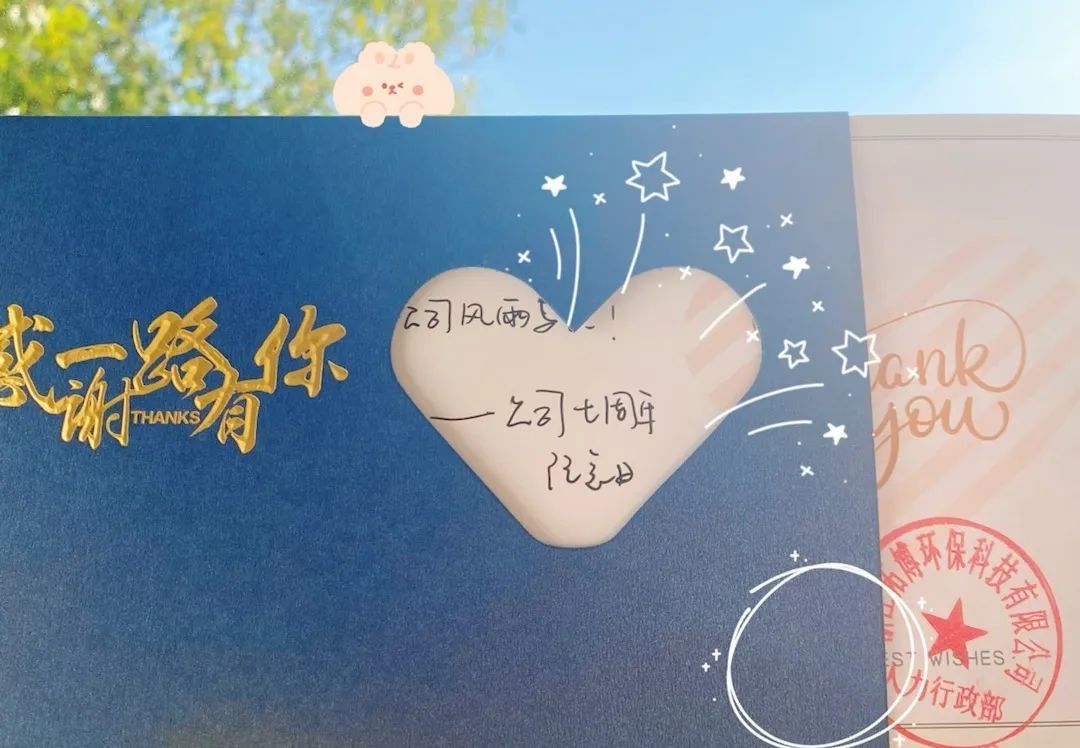 感谢一路有你
THANKS
公司风雨与
！
——公司七周年
纪念日
Thank
you
博环保科技有限公司
BEST WISHES
人力行政部